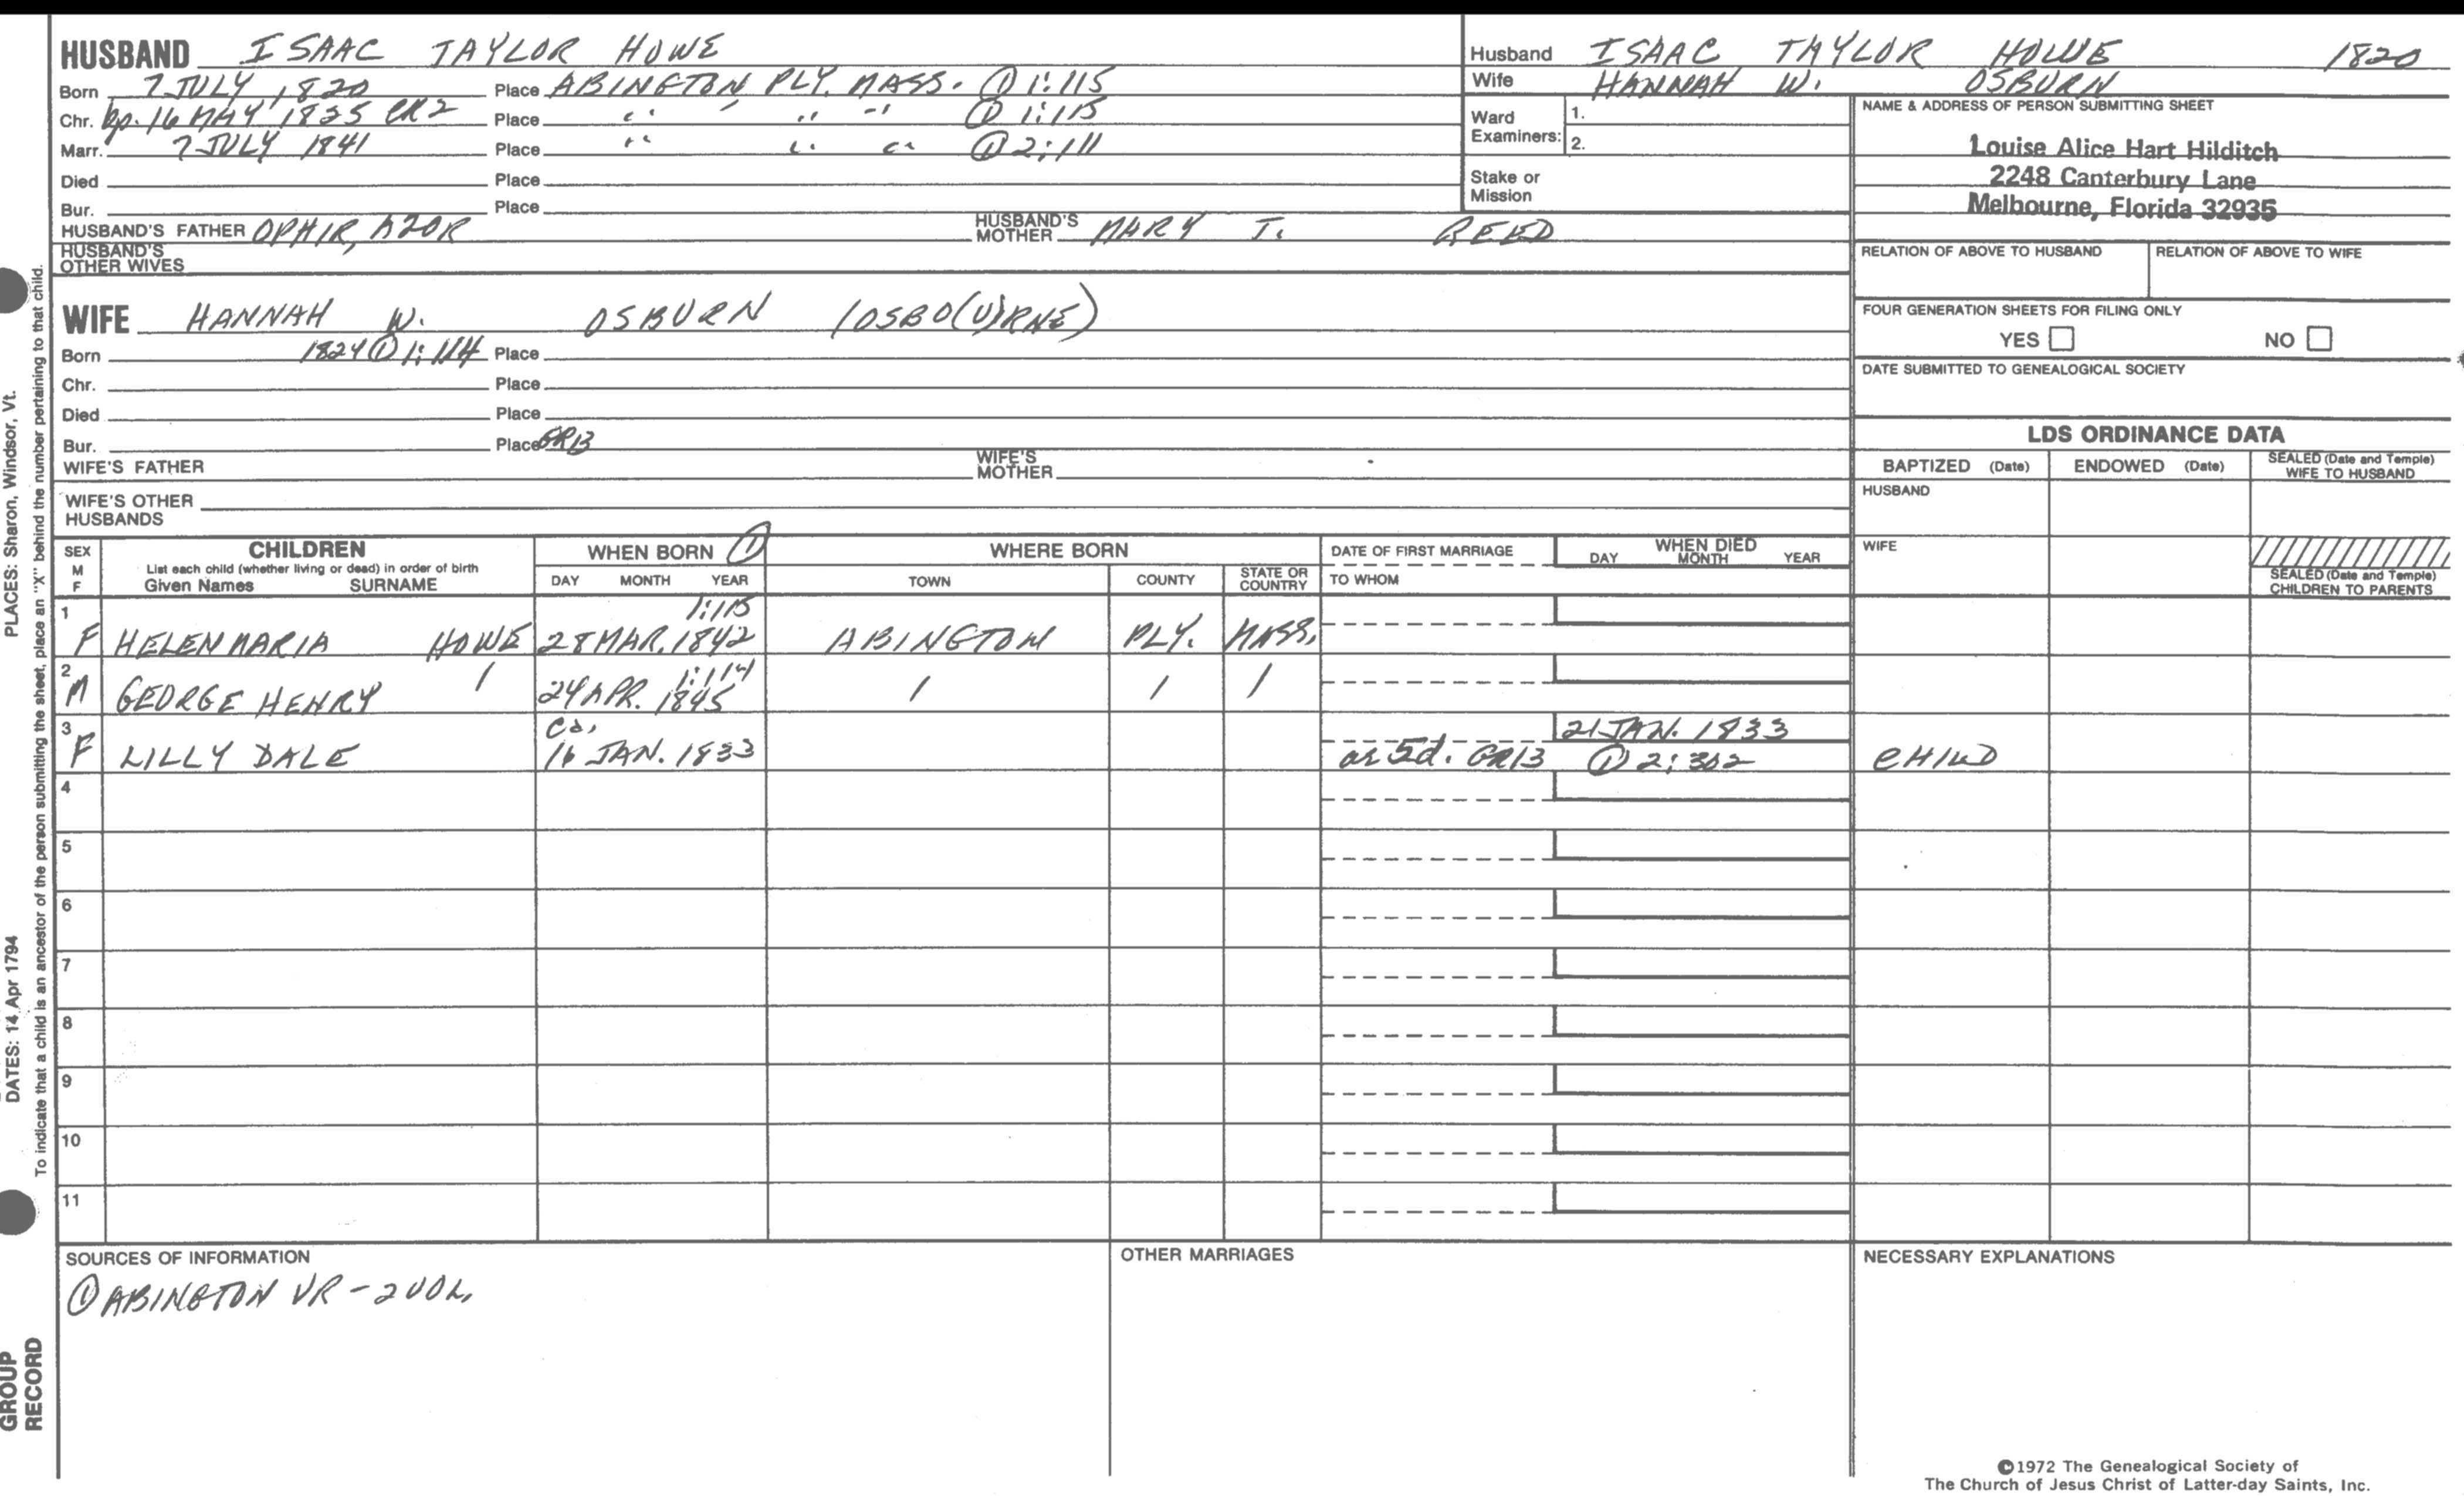 HUSBAND ISAAC TAYLOR HOWE
Born 7 JULY 1820 Place ABINGTON PLY. MASS. ① 1:115
Chr. bp. 16 MAY 1835 CR2 Place " " " ① 1:115
Marr. 7 JULY 1841 Place " " " ① 2:111
Died Place
Bur. Place
HUSBAND'S FATHER OPHIR, AZOR HUSBAND'S MOTHER MARY T. REED
HUSBAND'S OTHER WIVES
Husband ISAAC TAYLOR HOWE 1820
Wife HANNAH W. OSBURN
Ward Examiners: 1.
2.
Stake or Mission
NAME & ADDRESS OF PERSON SUBMITTING SHEET
Louise Alice Hart Hilditch
2248 Canterbury Lane
Melbourne, Florida 32935
RELATION OF ABOVE TO HUSBAND RELATION OF ABOVE TO WIFE
FOUR GENERATION SHEETS FOR FILING ONLY
YES NO
DATE SUBMITTED TO GENEALOGICAL SOCIETY
WIFE HANNAH W. OSBURN (OSBO(U)RNE)
Born 1824 ① 1:114 Place
Chr. Place
Died Place
Bur. Place GR13
WIFE'S FATHER WIFE'S MOTHER
WIFE'S OTHER HUSBANDS
LDS ORDINANCE DATA
BAPTIZED (Date) ENDOWED (Date) SEALED (Date and Temple) WIFE TO HUSBAND
HUSBAND
WIFE
SEALED (Date and Temple) CHILDREN TO PARENTS
SEX M F
CHILDREN
List each child (whether living or dead) in order of birth
Given Names SURNAME
WHEN BORN ①
DAY MONTH YEAR
WHERE BORN
TOWN COUNTY STATE OR COUNTRY
DATE OF FIRST MARRIAGE
TO WHOM
WHEN DIED
DAY MONTH YEAR
1:115
1 F HELEN MARIA HOWE 28 MAR. 1842 ABINGTON PLY. MASS.
1:114
2 M GEORGE HENRY / 24 APR. 1845 / / /
ca. 21 JAN. 1833
3 F LILLY DALE 16 JAN. 1833 as 5d. GR13 ① 2:302 CHILD
4
5
6
7
8
9
10
11
SOURCES OF INFORMATION
① ABINGTON VR - 2 VOL.
OTHER MARRIAGES
NECESSARY EXPLANATIONS
©1972 The Genealogical Society of
The Church of Jesus Christ of Latter-day Saints, Inc.
PLACES: Sharon, Windsor, Vt.
DATES: 14 Apr 1794
To indicate that a child is an ancestor of the person submitting the sheet, place an "X" behind the number pertaining to that child.
GROUP
RECORD